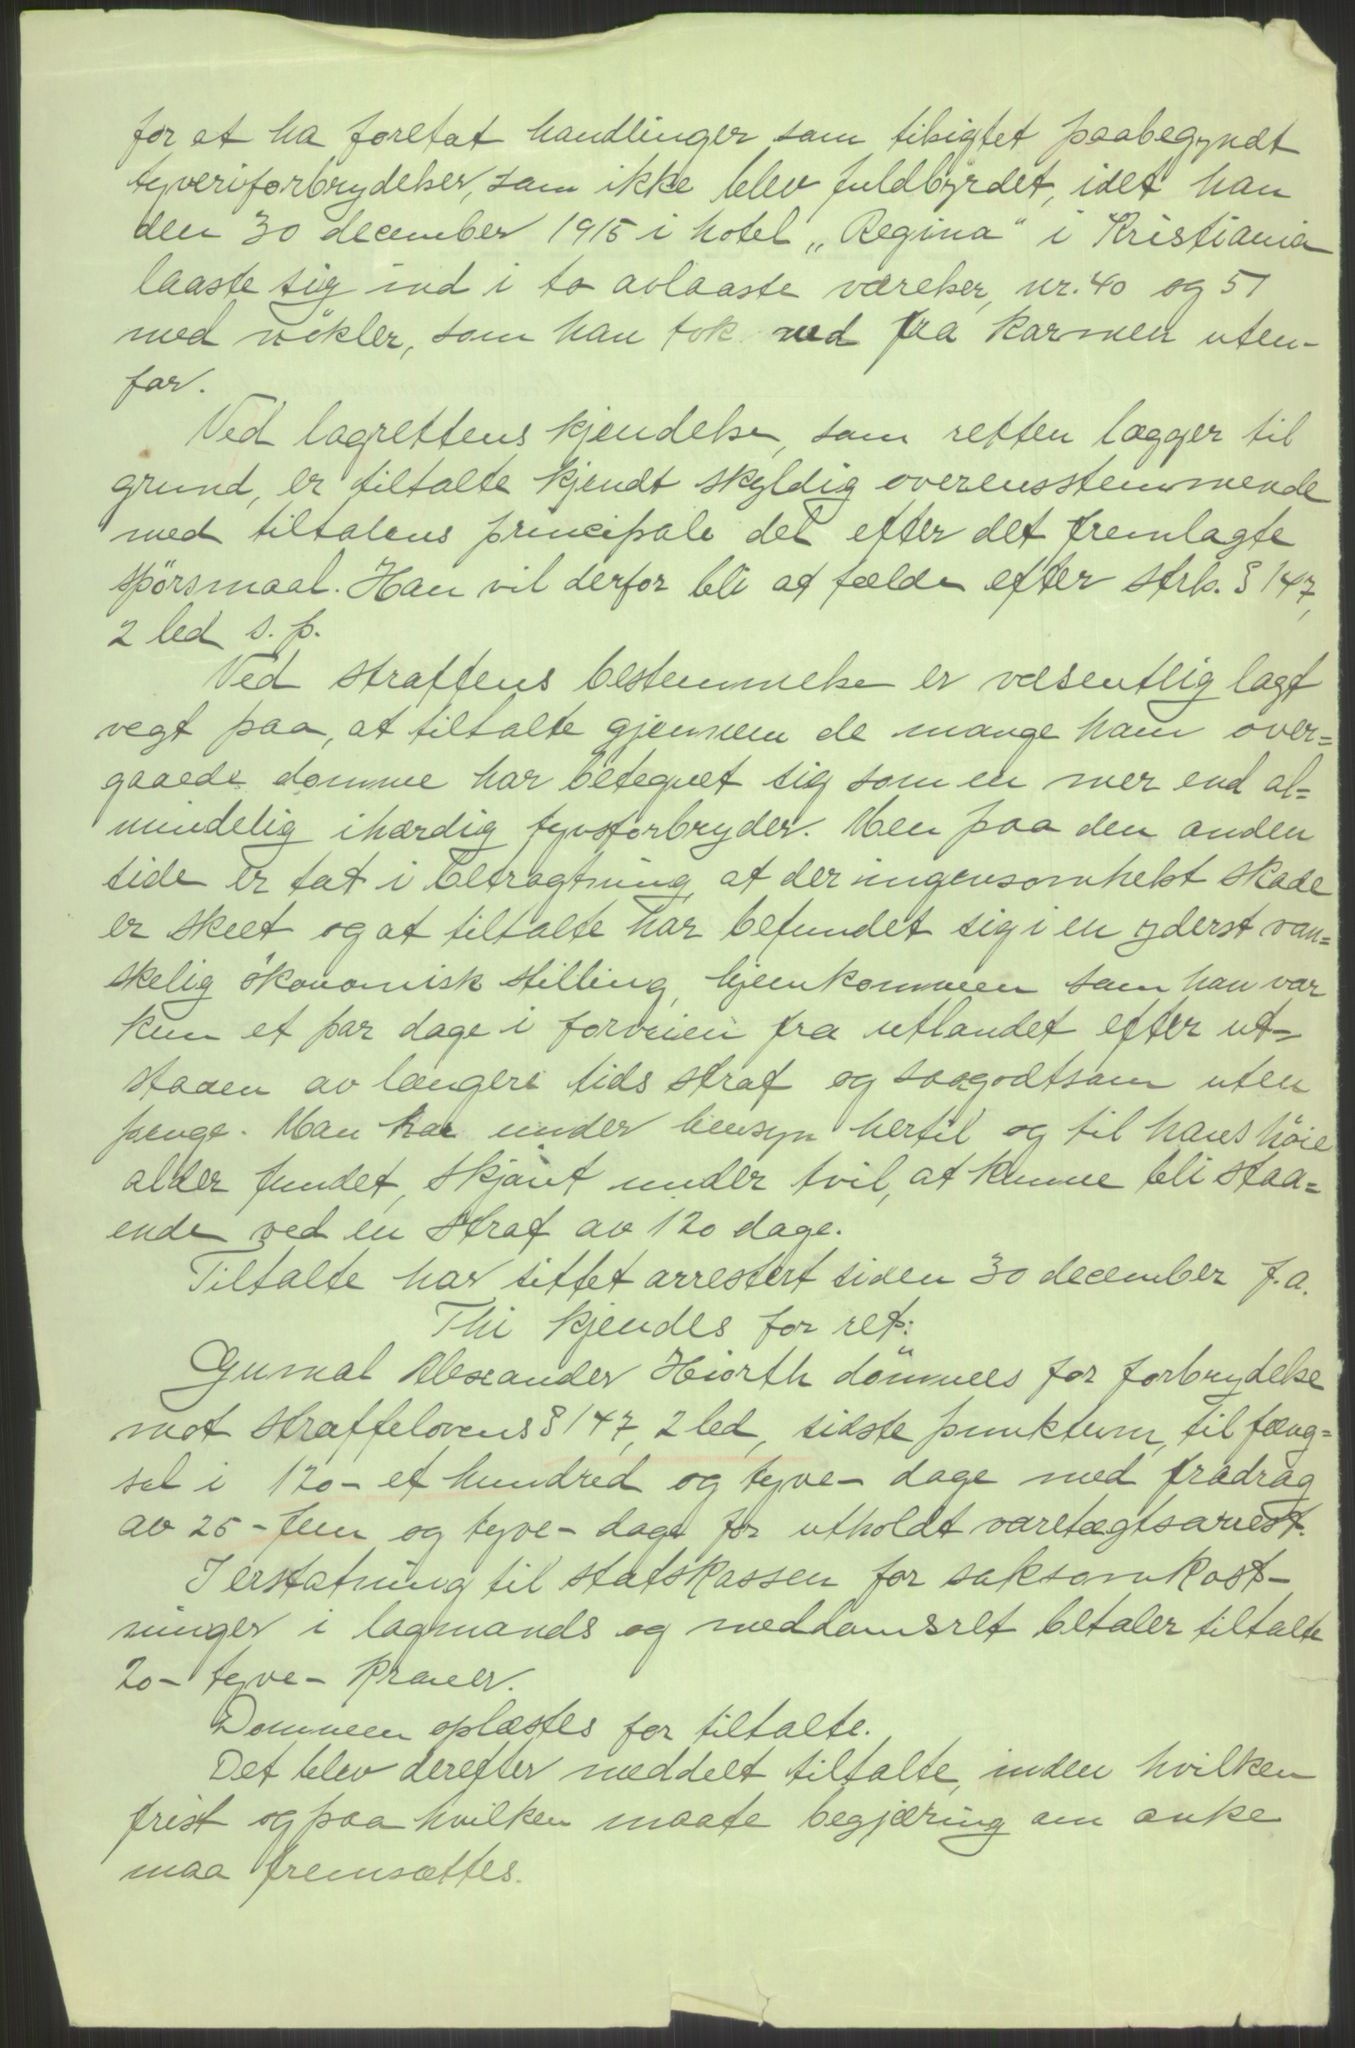 for at ha foretat handlinger som tilsigtet paabegyndt
tyveriforbrydelser, som ikke blev fuldbyrdet, idet han
den 30 december 1915 i hotel „Regina" i Kristiania
laaste sig ind i to avlaaste værelser, nr. 40 og 51
med nökler, som han tok ned fra karmen uten-
for.
Ved lagrettens kjendelse, som retten lægger til
grund, er tiltalte kjendt skyldig overensstemmende
med tiltalens principale del efter det fremlagte
spörsmaal. Han vil derfor bli at fælde efter strk. § 147,
2 led s. p.
Ved straffens bestemmelse er væsentlig lagt
vegt paa, at tiltalte gjennem de mange ham over=
gaaede domme har betegnet sig som en mer end al=
mindelig ihærdig tyvsforbryder. Men paa den anden
side er tat i betragtning, at der ingensomhelst skade
er skeet og at tiltalte har befundet sig i en yderst van=
skelig ökonomisk stilling, hjemkommen som han var
kun et par dage i forveien fra utlandet efter ut=
staaen av længere tids straf og saagodtsom uten
penge. Man har under hensyn hertil og til hans höie
alder fundet, skjönt under tvil, at kunne bli staa=
ende ved en straf av 120 dage.
Tiltalte har sittet arrestert siden 30 december f.a.
Thi kjendes for ret:
Gumal Alexander Hiorth dömmes for forbrydelse
mot straffelovens § 147, 2 led, sidste punktum, til fæng=
sel i 120 – et hundred og tyve – dage med fradrag
av 25 – fem og tyve – dage for utholdt varetægtsarrest.
I erstatning til statskassen for saksomkost-
ninger i lagmands og meddomsret betaler tiltalte
20 – tyve – kroner.
Dommen oplæstes for tiltalte.
Det blev derefter meddelt tiltalte, inden hvilken
frist og paa hvilken maate begjæring om anke
maa fremsættes.